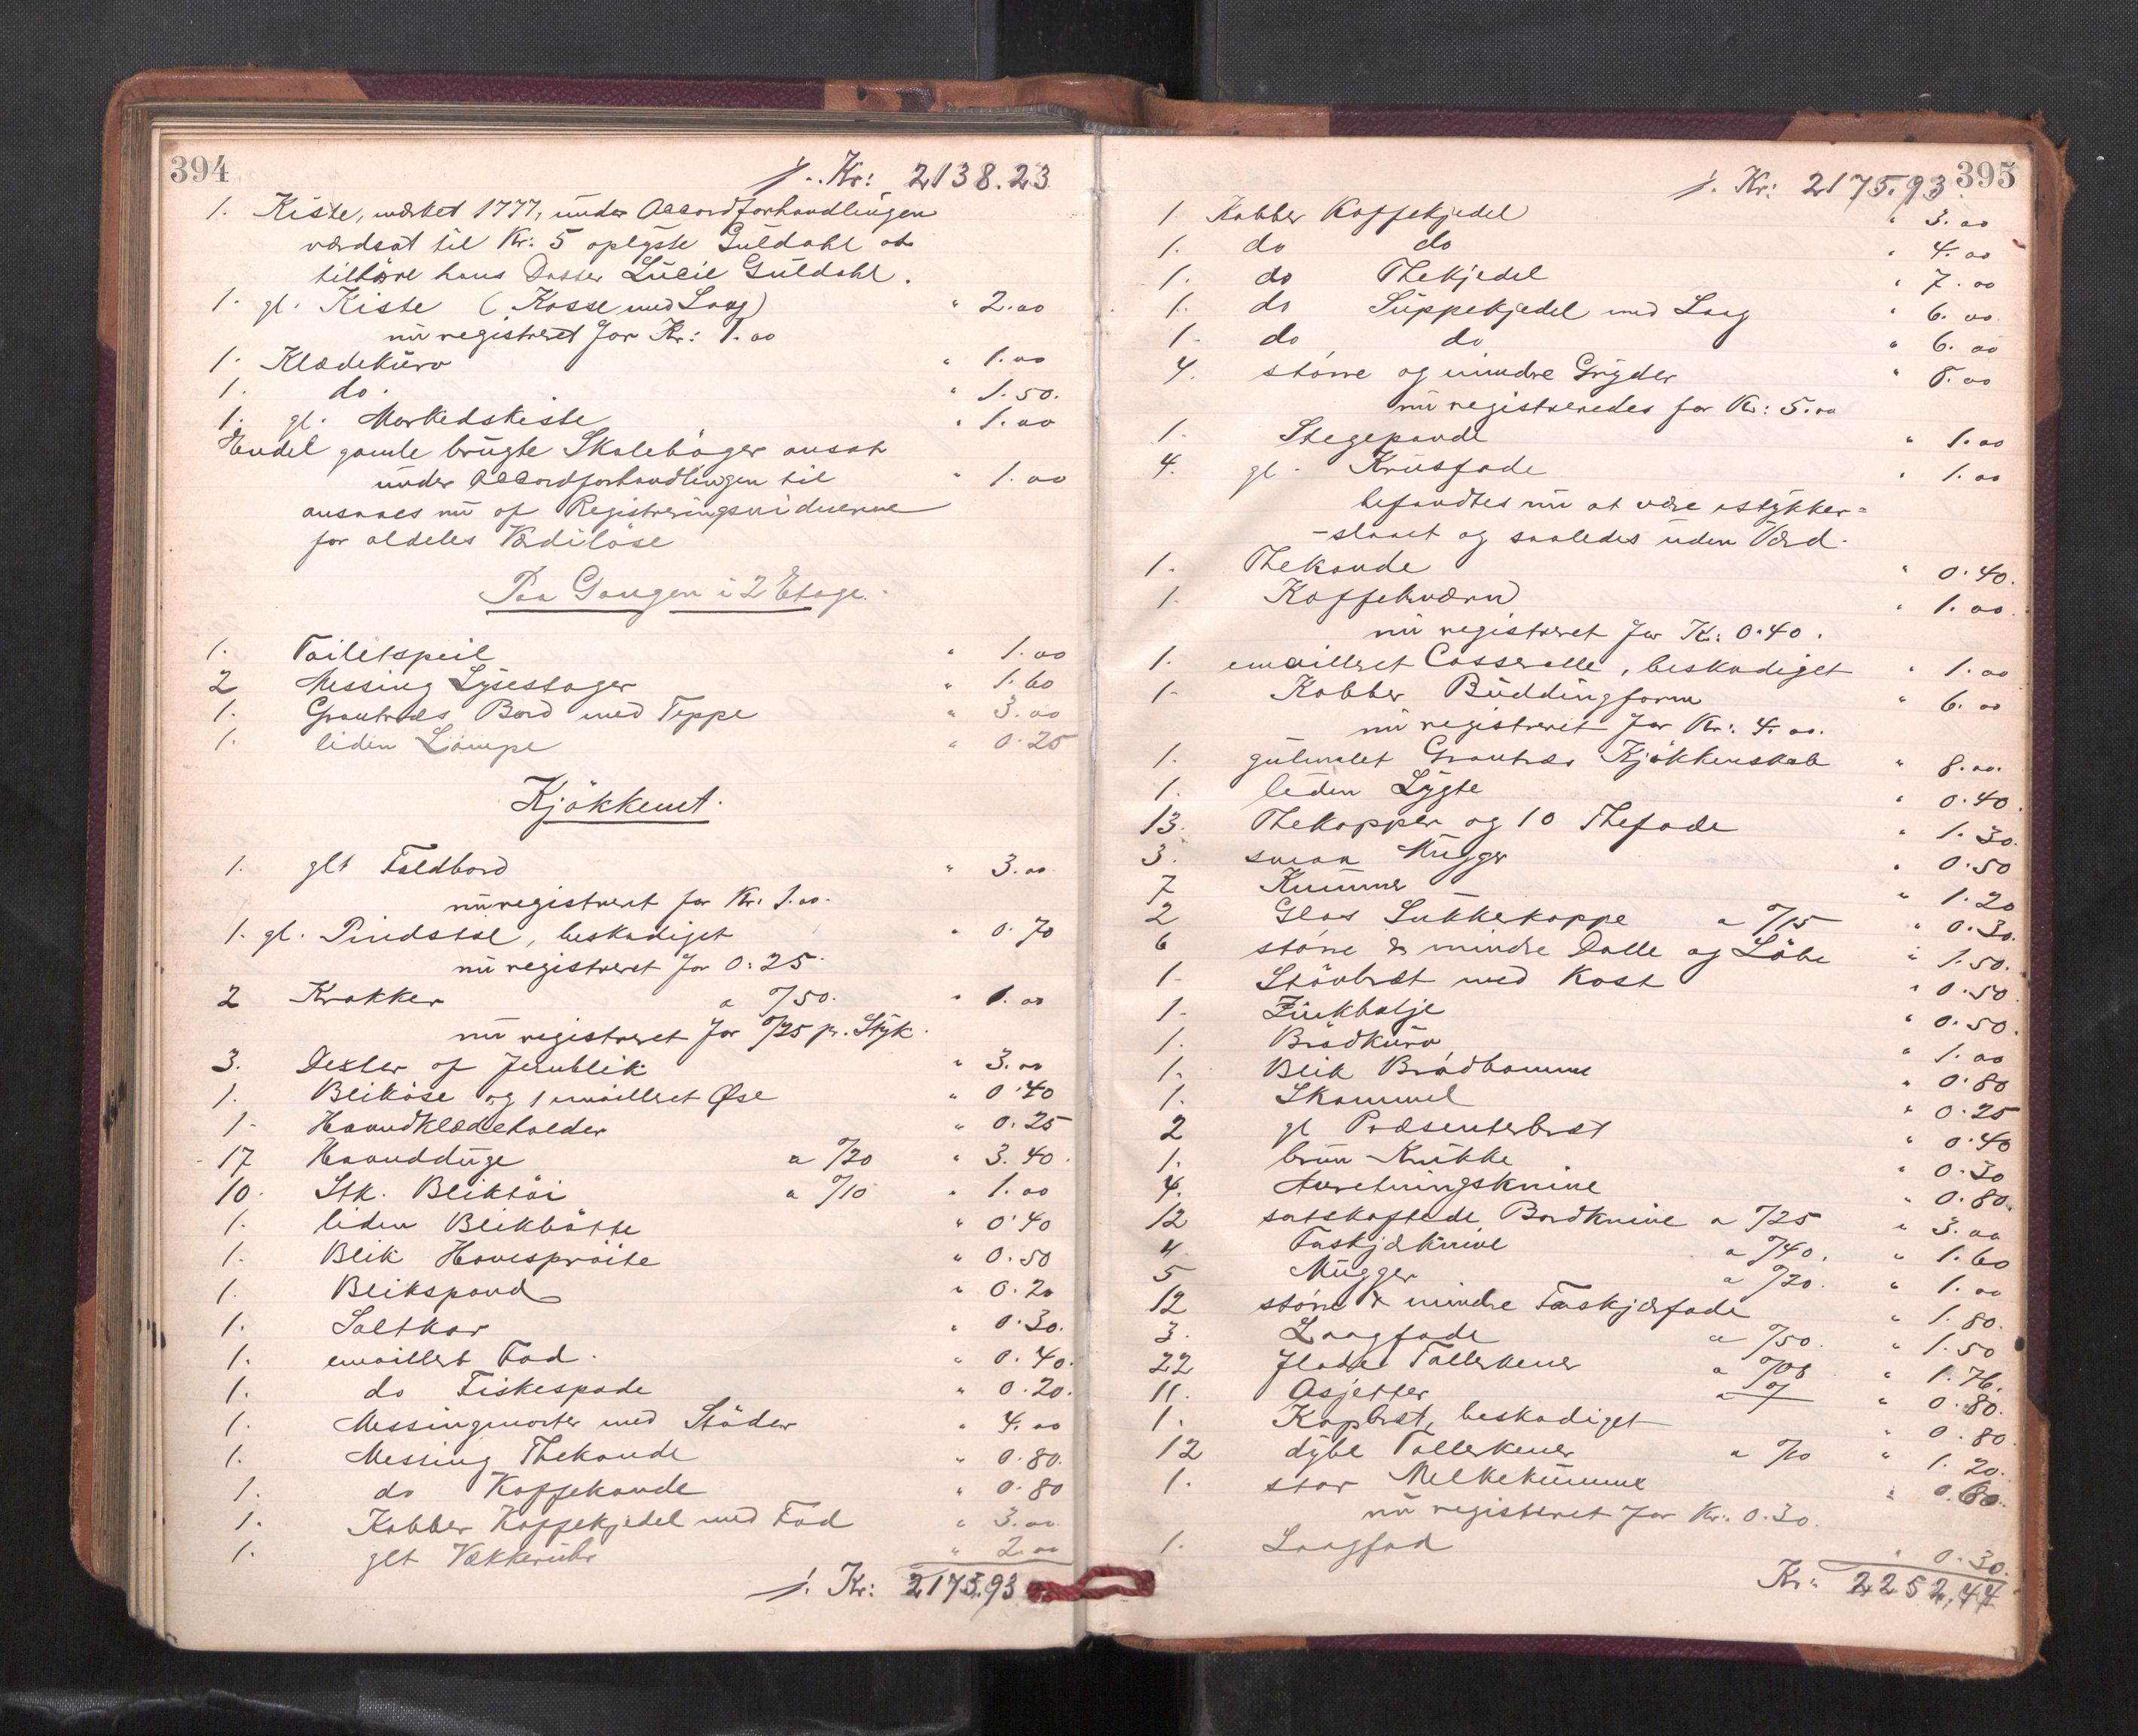 394
f. Kr: 2138.23
1. Kiste, mærket 1777, under Accordforhandlingen
værdsat til Kr: 5 oplyste Guldahl at
tilhøre hans Datter Lucie Guldahl.
1. gl. Kiste (Kasse med Laag) " 2.00
nu registreret for Kr: 1.00
1. Klædekurv " 1.00
1. do. " 1.50.
1. gl. Markedskiste " 1.00
Endel gamle brugte Skolebøger ansat
under Accordforhandlingen til " 1.00
ansaaes nu af Registreringsvidnerne
for aldeles Værdiløse
Paa Gangen i 2 Etage.
1. Toiletspeil " 1.00
2 Messing Lysestager " 1.60
1. Grantræs Bord med Teppe " 3.00
1. liden Lampe " 0.25
Kjøkkenet.
1. glt Foldbord " 3.00
nu registreret for Kr. 1.00.
1. gl. Pindstol, beskadiget " 0.70
nu registreret for 0.25.
2 Krakker a 0/50. " 1.00
nu registreret for 0/25 pr. Styk.
3. Dexler af Jernblik " 3.00
1. Blikøse og 1 emailleret Øse " 0.40
1. Haandklædeholder " 0.25
17 Haandduge a 0/20 " 3.40.
10. Stk. Bliktøi a 0/10 " 1.00
1. liden Blikbøtte " 0.40
1. Blik Havesprøite " 0.50
1. Blikspand " 0.20
1. Saltkar " 0.30.
1. emaillert Fad. " 0.40.
1. do Fiskespade " 0.20.
1. Messingmorter med Støder " 4.00
1. Messing Thekande " 0.80.
1. do Kaffekande " 0.80
1. Kobber Kaffekjedel med Fad " 3.00.
1. glt Vækkeruhr " 2.00
f. Kr: 2175.93
395
f. Kr: 2175.93
1 Kobber Kaffekjedel " 3.00
1. do do " 4.00
1. do Thekjedel " 7.00
1. do Suppekjedel med Laag " 6.00
1. do do " 6.00
4. større og mindre Gryder " 8.00
nu registreredes for Kr: 5.00
1. Stegepande " 1.00
4. gl. Krusfade " 1.00
befandtes nu at være istykker=
-slaaet og saaledes uden Værd.
1. Thekande " 0.40.
1. Kaffekværn " 1.00
nu registreret for Kr: 0.40.
1. emailleret Casserolle, beskadiget " 1.00
1. Kobber Buddingform " 6.00
nu registreret for Kr: 4.00.
1. gulmalet Grantræs Kjøkkenskab " 8.00.
1. liden Lygte " 0.40.
13. Thekopper og 10 Thefade " 1.30.
3. smaa Mugger " 0.50
7 Kummer " 1.20
2 Glas Sukkekoppe a 0/15 " 0.30.
6 større & mindre Dalle og Løbe " 1.50.
1. Støvbræt med Kost " 0.50.
1. Zinkbalje " 0.50.
1. Brødkurv " 1.00
1. Blik Brødbomme " 0.80
1. Skammel " 0.25
2 gl Præsenterbræt " 0.40
1. brun Krukke " 0.30
4. Anretningsknive " 0.80.
12 sortskaftede Bordknive a 0/25 " 3.00
4 Forskjærknive a 0/40. " 1.60
5 Mugger a 0/20. " 1.00
12 større & mindre Forskjærfade " 1.80.
3. Laagfade a 0/50. " 1.50
22 flade Tallerkener a 0/08 " 1.76.
11. Asjetter " 0.80.
1. Kopbræt, beskadiget " 0.80
12 dybe Tallerkener a 0/10 " 1.20.
1. stor Melkekumme " 0.60.
nu registeret for Kr. 0.30.
1. Laagfad " 0.30.
Kr: 2252,44